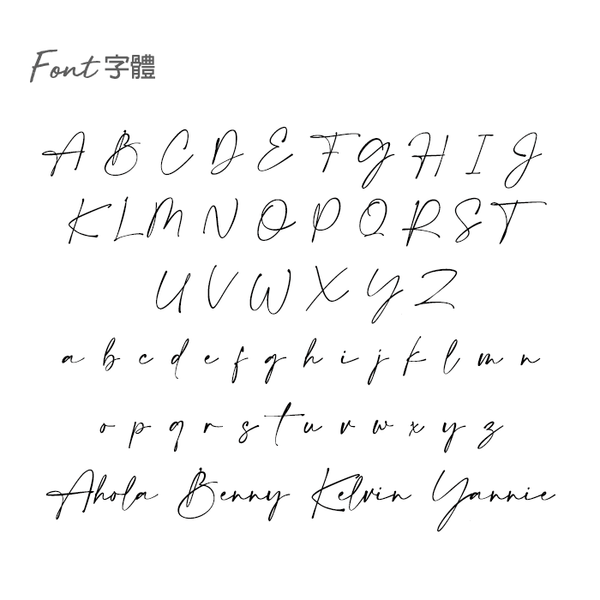 Font 字體
A B C D E F G H I J
K L M N O P Q R S T
U V W X Y Z
a b c d e f g h i j k l m n
o p q r s t u v w x y z
Ahola Benny Kelvin Yannie